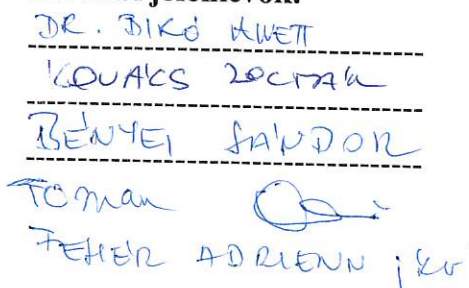 DR. BIKÓ ANETT
KOVÁCS ZOLTÁN
BÉNYEI SÁNDOR
TOMAN
FEHÉR ADRIENN jkv